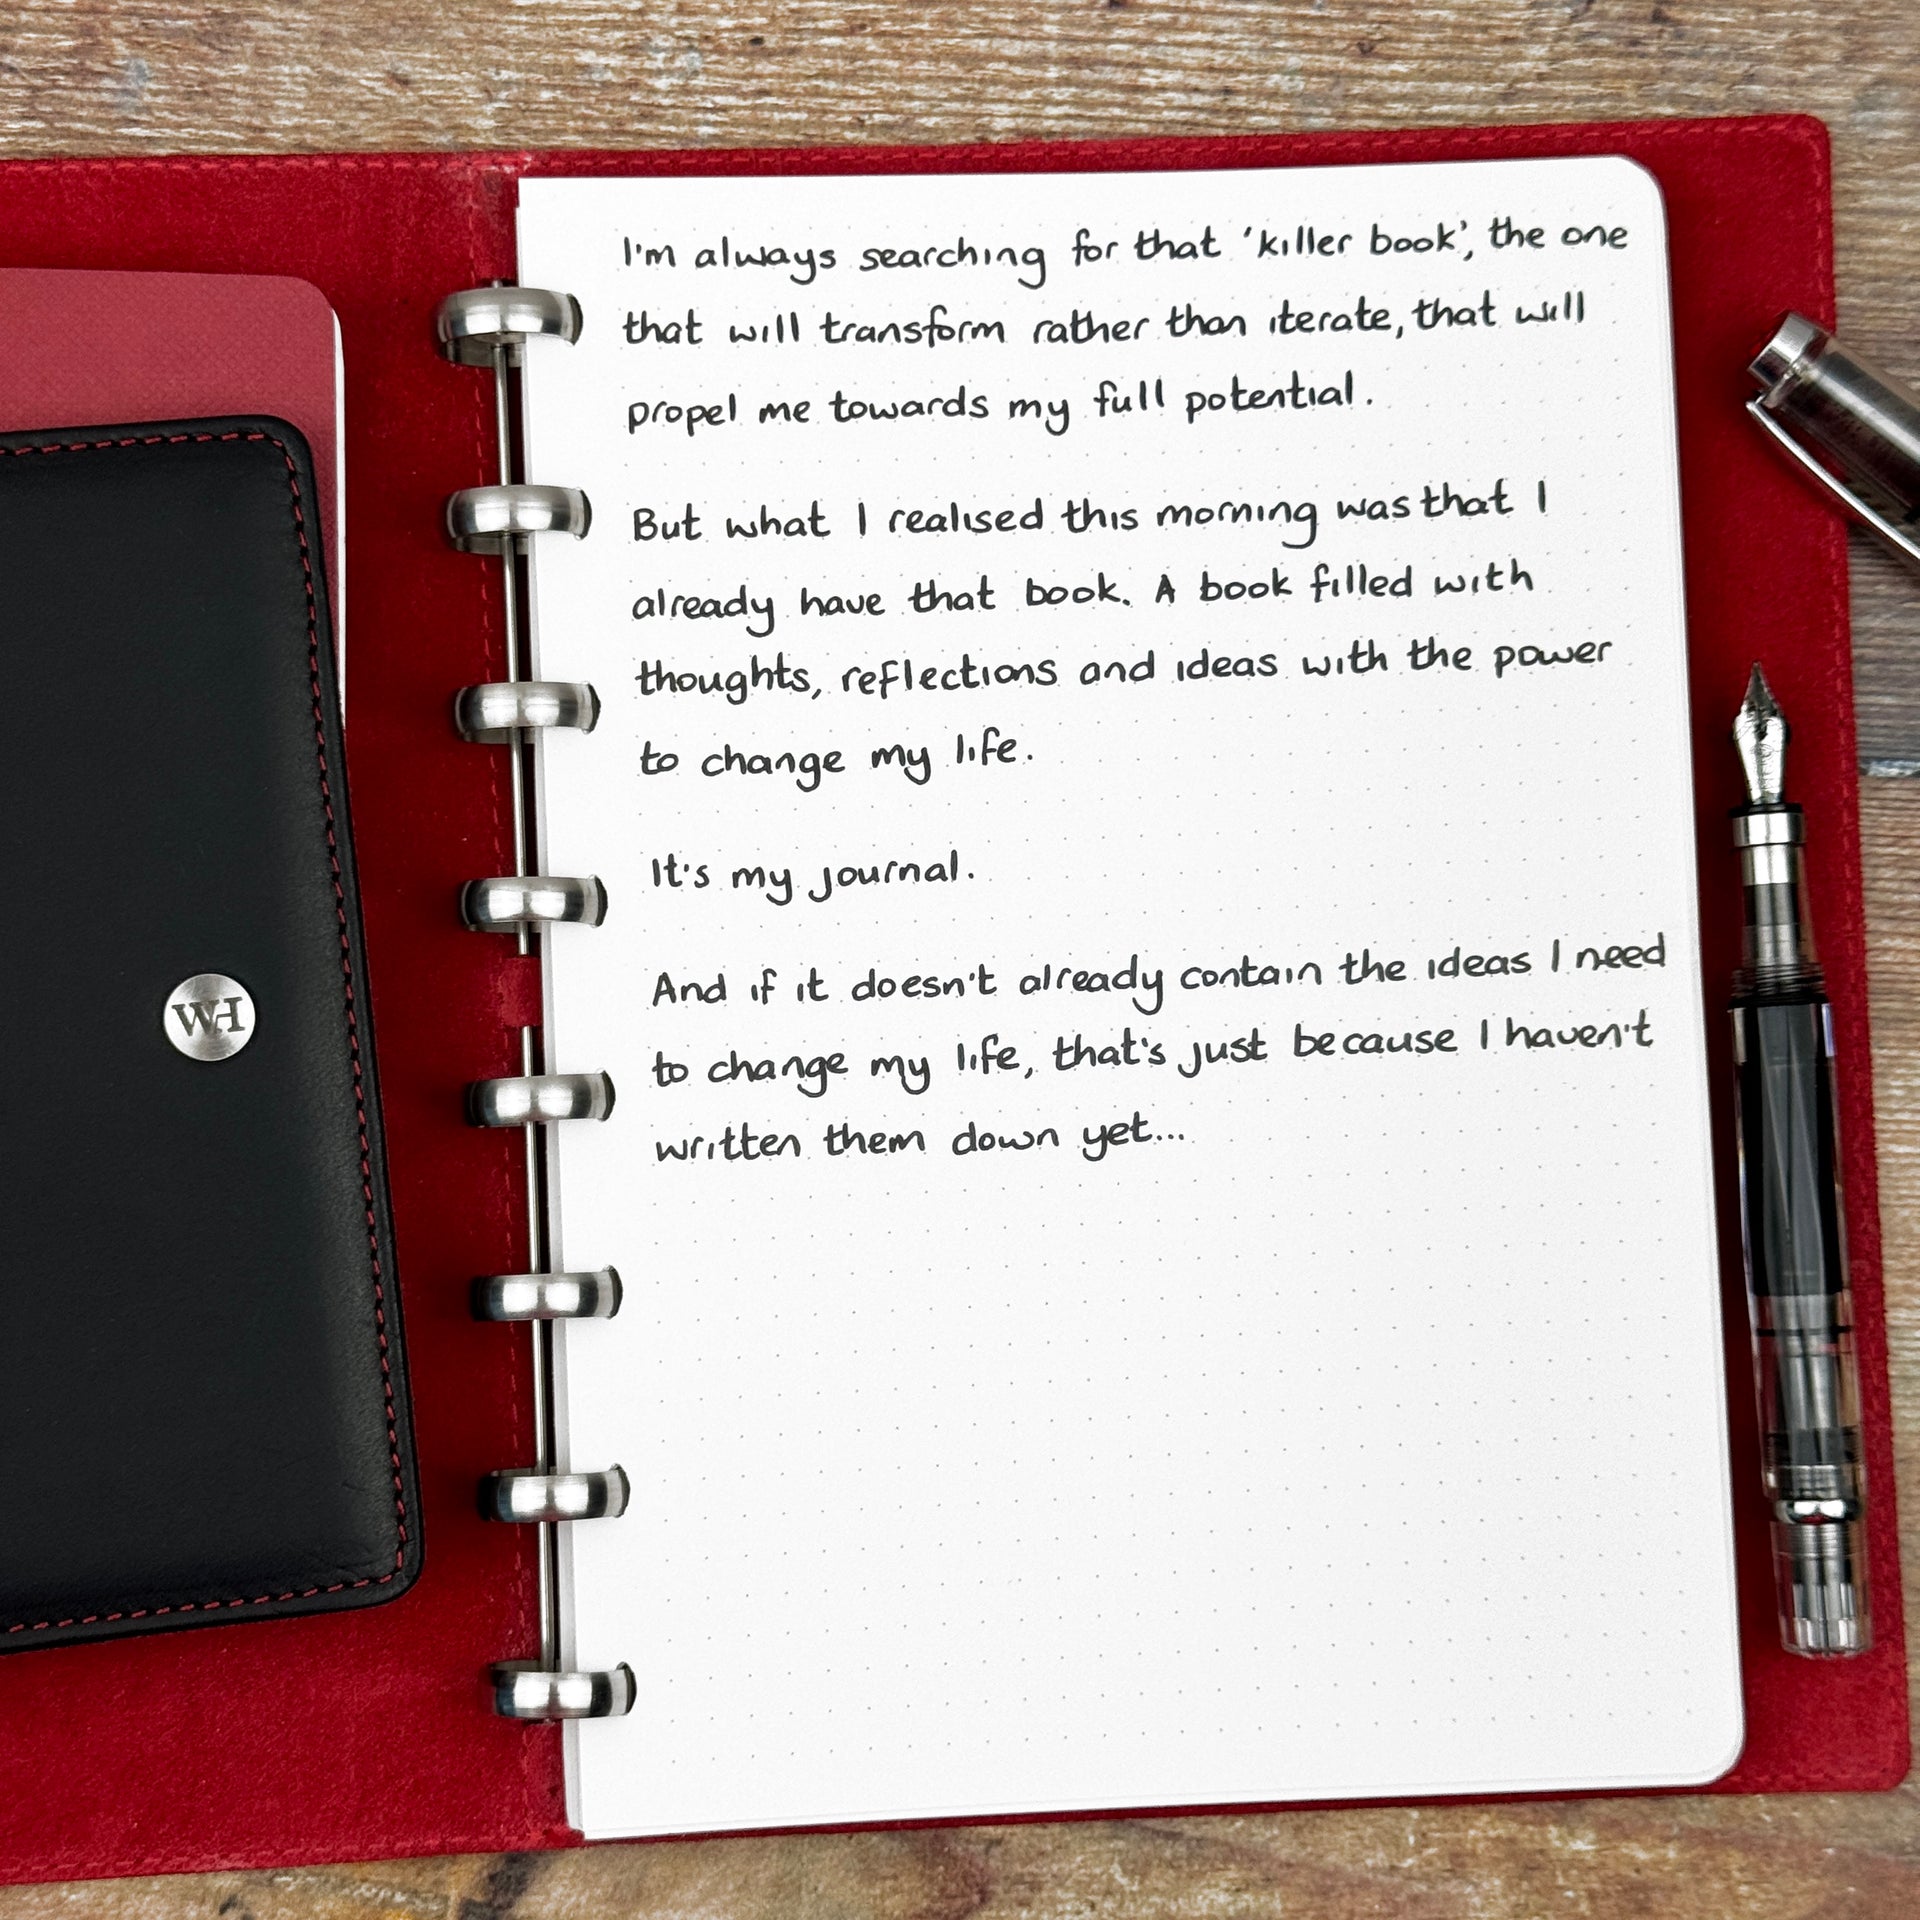 I'm always searching for that 'killer book', the one
that will transform rather than iterate, that will
propel me towards my full potential.
But what I realised this morning was that I
already have that book. A book filled with
thoughts, reflections and ideas with the power
to change my life.
It's my journal.
And if it doesn't already contain the ideas I need
to change my life, that's just because I haven't
written them down yet...
WH